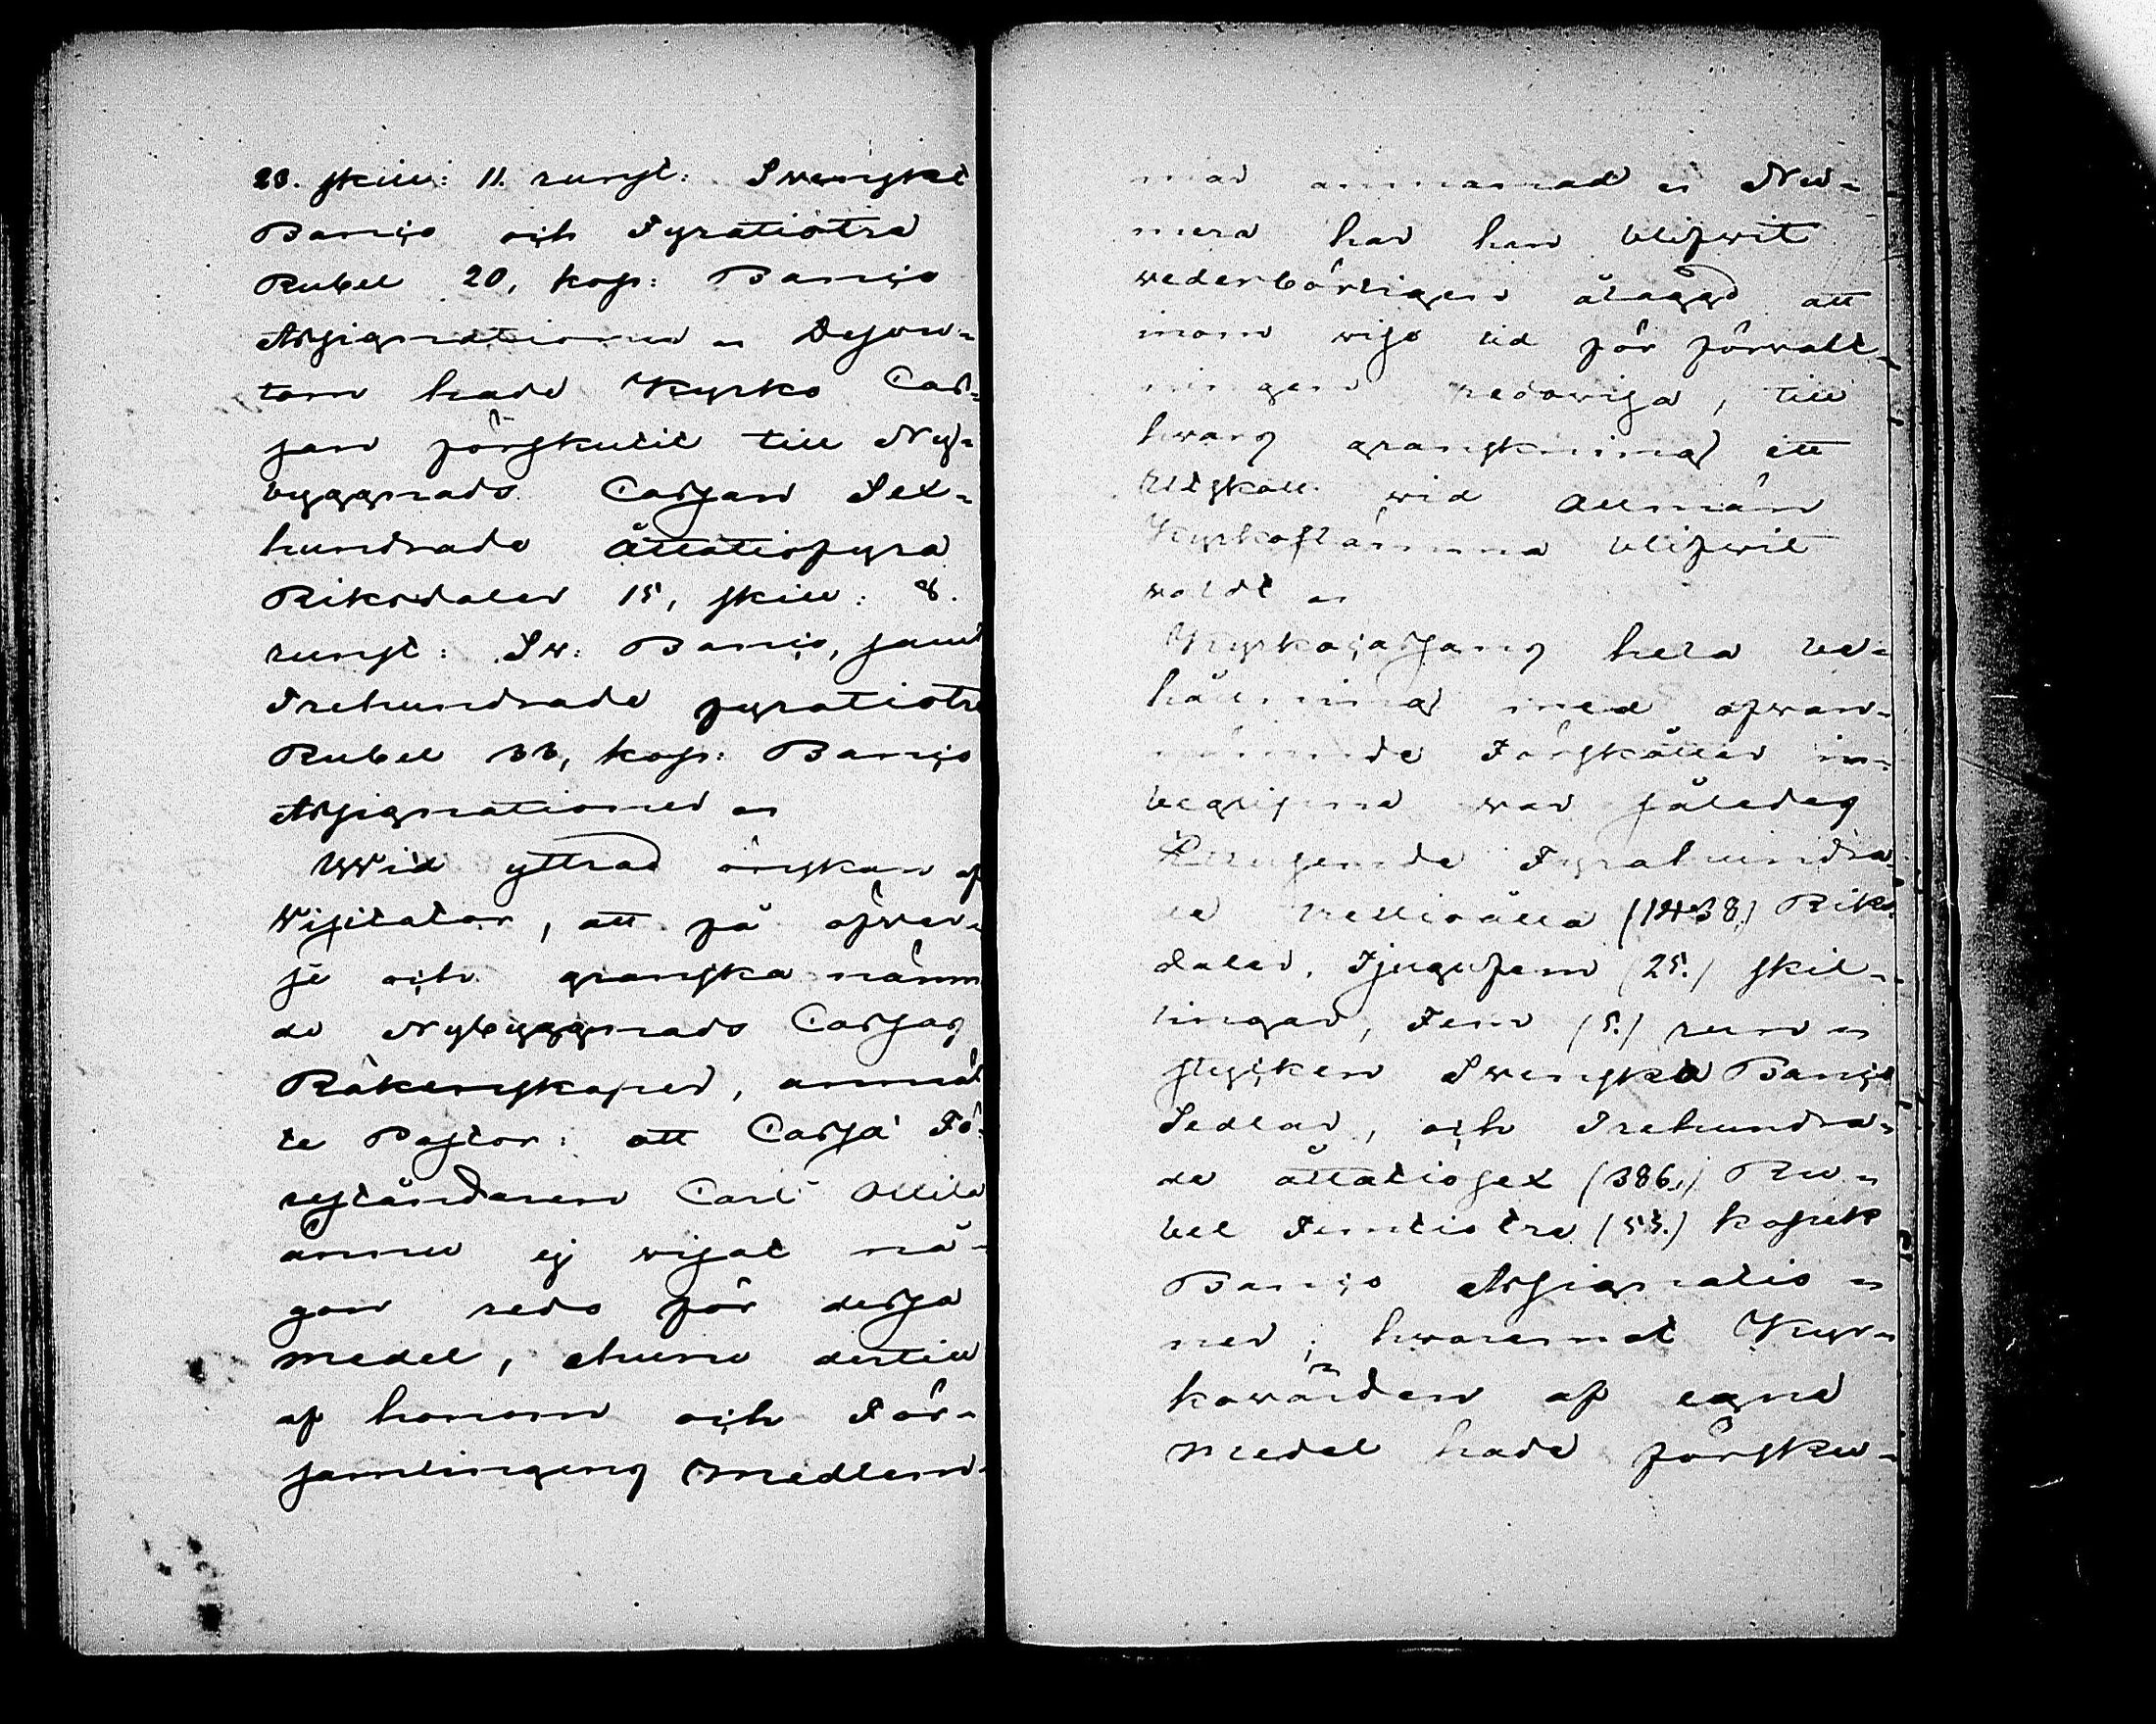 23. skill: 11. runst: Swenskt
Banco och Fyratiotre
Rubel 20, kop: Banco
Assignationer. Dessu-
tom hade Kyrko Cas-
san förskutit till Ny-
byggnads Cassan Sex-
hundrade åttatiofyra
Riksdaler 15, skill: 8.
runst: Sw: Banco, samt
Trehundrade fyratiotre
Rubel 33, kop: Banco
Assignationer.
Wid yttrad önskan af
Visitator, att få öfwer-
se och granska nämn
de Nybyggnads Cassas
Räkenskaper, anmäl
te Pastor: att Cassa Fö-
reståndaren Carl
ännu ej wisat nå-
gon redo för dessa
medel, ehuru dertill
af honom och För-
samlingens medlem-
mar anmanad. Nu-
mera har han blifwit
wederbörligen ålaggd att
inom wiss tid för förwalt-
ningen redowisa, till
hwars granskning ett
Utskott wid Allmän
Kyrkostämma blifwit
waldt.
Kyrkocassans hela be-
hållning med ofwan-
nämnde Förskotter in-
begripne war således
Ettusende Fyrahundra
de trettioåtta (1438.) Riks-
daler, Tjugufem (25.) skil-
lingar, Fem (5.) run-
stycken Swenska Banco
Sedlar, och Trehundra-
de åttatiosex (386.) Ru-
bel Femtiotre (53.) kopek
Banco Assignatio-
ner; hwaremot Kyr-
kowärden af egne
medel hade försku-